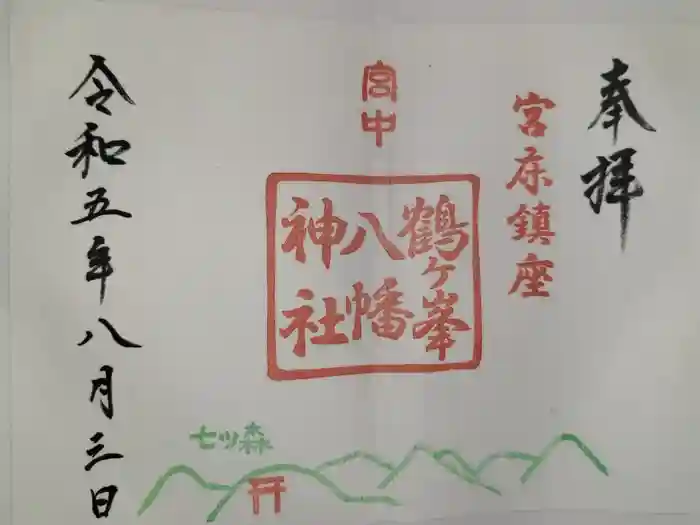 奉拝
宮床鎮座
宮中
鶴ヶ峯
八幡
神社
七ツ森
令和五年八月三日